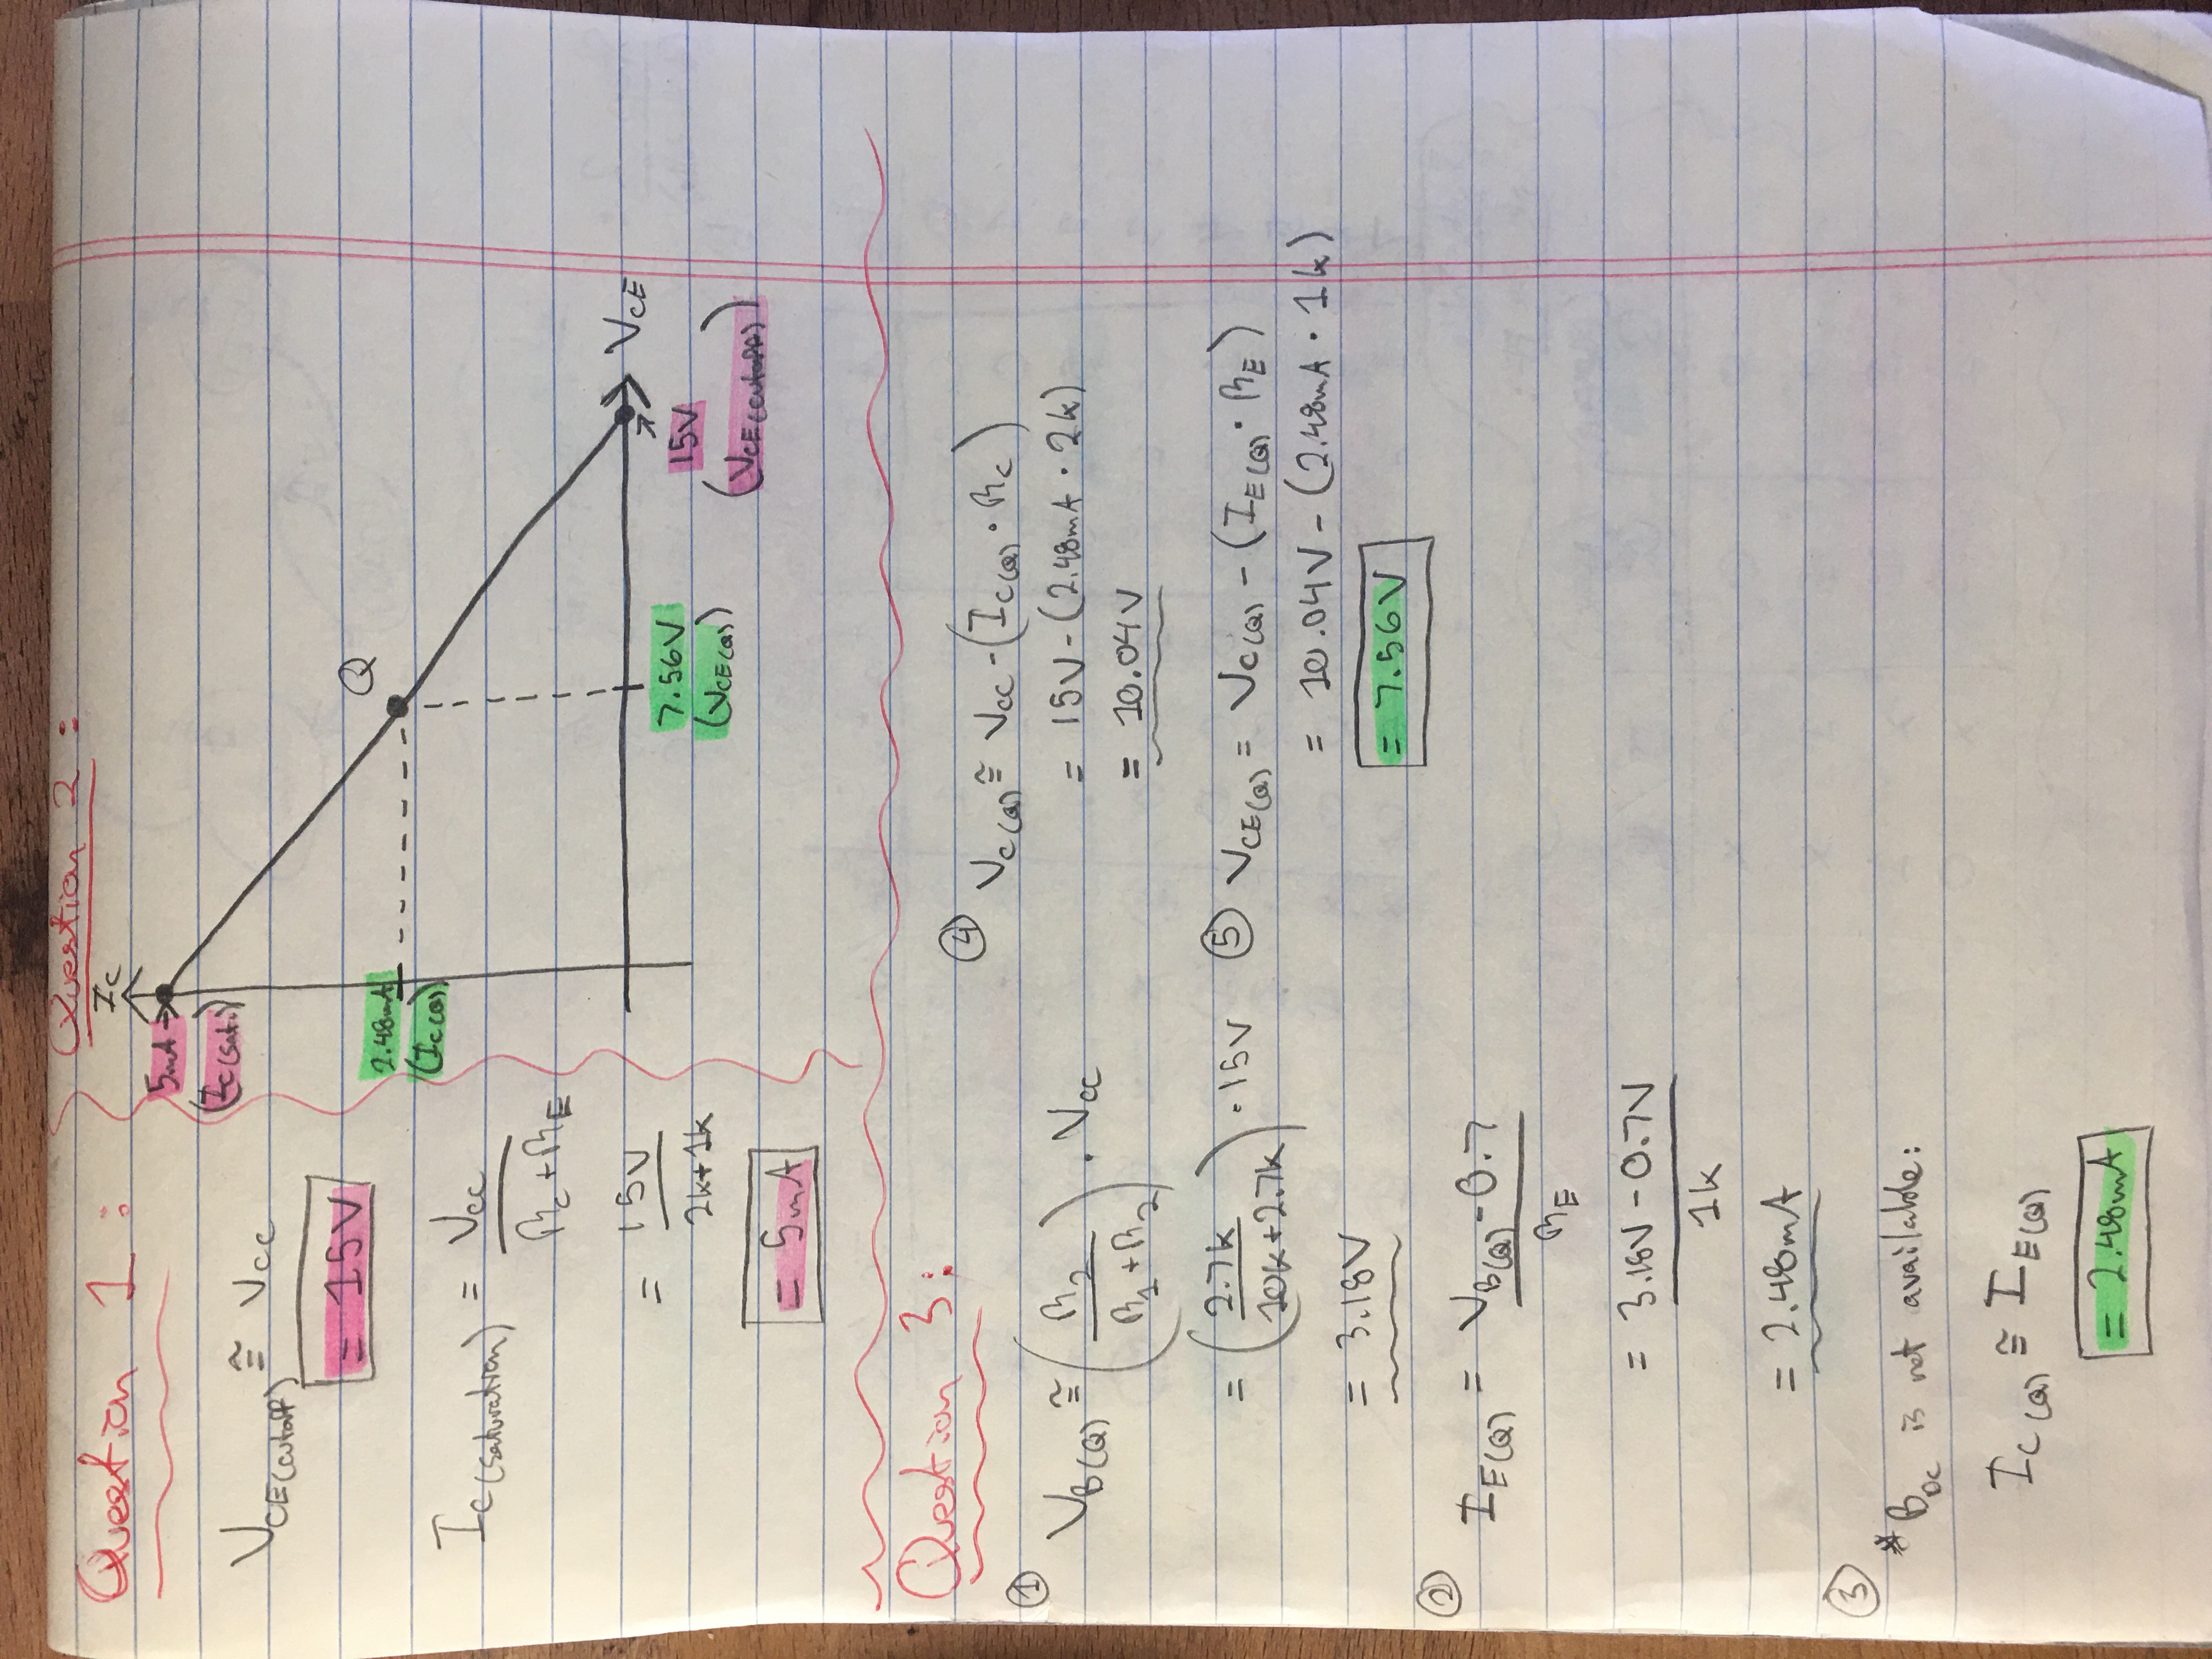 Question 1 :
V_CE(cutoff) ≅ V_CC
= 15V
I_C(saturation) = V_CC / (R_C + R_E)
= 15V / (2k+1k)
= 5mA
Question 2 :
I_C
5mA →
(I_C(sat.))
Q
2.48mA
(I_C(Q))
V_CE
7.56V
(V_CE(Q))
15V
(V_CE(cutoff))
Question 3 :
①
V_B(Q) ≅ (R_2 / (R_1 + R_2)) · V_CC
= (2.7k / (10k+2.7k)) · 15V
= 3.18V
②
I_E(Q) = (V_B(Q) - 0.7) / R_E
= (3.18V - 0.7V) / 1k
= 2.48mA
③
* B_DC is not available:
I_C(Q) ≅ I_E(Q)
= 2.48mA
④ V_C(Q) ≅ V_CC - (I_C(Q) · R_C)
= 15V - (2.48mA · 2k)
= 10.04V
⑤ V_CE(Q) = V_C(Q) - (I_E(Q) · R_E)
= 10.04V - (2.48mA · 1k)
= 7.56V